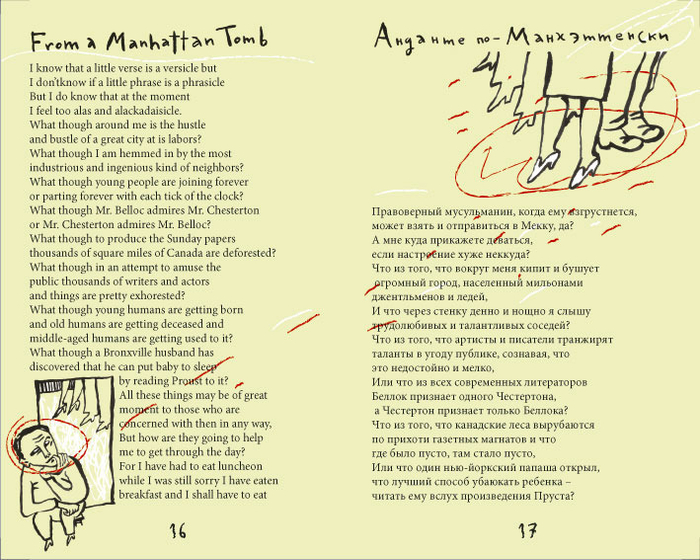 From a Manhattan Tomb
I know that a little verse is a versicle but
I don'tknow if a little phrase is a phrasicle
But I do know that at the moment
I feel too alas and alackadaisicle.
What though around me is the hustle
and bustle of a great city at is labors?
What though I am hemmed in by the most
industrious and ingenious kind of neighbors?
What though young people are joining forever
or parting forever with each tick of the clock?
What though Mr. Belloc admires Mr. Chesterton
or Mr. Chesterton admires Mr. Belloc?
What though to produce the Sunday papers
thousands of square miles of Canada are deforested?
What though in an attempt to amuse the
public thousands of writers and actors
and things are pretty exhorested?
What though young humans are getting born
and old humans are getting deceased and
middle-aged humans are getting used to it?
What though a Bronxville husband has
discovered that he can put baby to sleep
by reading Proust to it?
All these things may be of great
moment to those who are
concerned with then in any way,
But how are they going to help
me to get through the day?
For I have had to eat luncheon
while I was still sorry I have eaten
breakfast and I shall have to eat
16
Анданте по-Манхэттенски
Правоверный мусульманин, когда ему взгрустнется,
может взять и отправиться в Мекку, да?
А мне куда прикажете деваться,
если настроение хуже неккуда?
Что из того, что вокруг меня кипит и бушует
огромный город, населенный мильонами
джентльменов и ледей,
И что через стенку денно и нощно я слышу
трудолюбивых и талантливых соседей?
Что из того, что артисты и писатели транжирят
таланты в угоду публике, сознавая, что
это недостойно и мелко,
Или что из всех современных литераторов
Беллок признает одного Честертона,
а Честертон признает только Беллока?
Что из того, что канадские леса вырубаются
по прихоти газетных магнатов и что
где было пусто, там стало пусто,
Или что один нью-йоркский папаша открыл,
что лучший способ убаюкать ребенка –
читать ему вслух произведения Пруста?
17